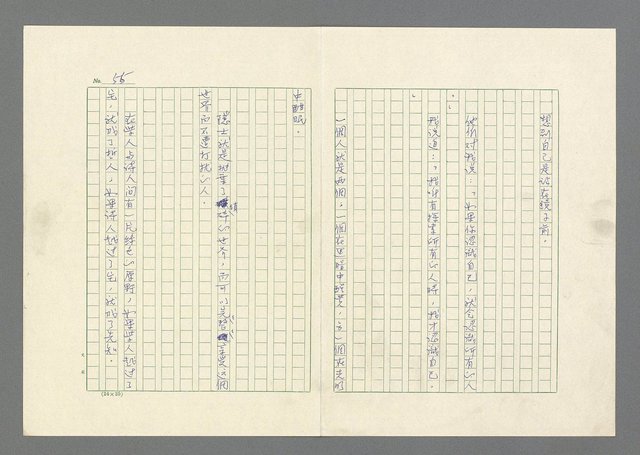 想到自己是站在鏡子前。
他們對我說:「如果你認識自己,就會認識所有的人
。」
我說道:「我唯有探索所有的人時,我才認識自己。
」
一個人就是兩個,一個在黑暗中醒覺,另一個在光明
No. 55
中酣眠。
隱士就是拋棄了碎的世界,而可以享受這個
世界而不遭打擾的人。
在學人與詩人間有一片綠色的原野,如果學人越過了
它,就成了哲人,如果詩人越過了它,就成了先知。
(24×25)